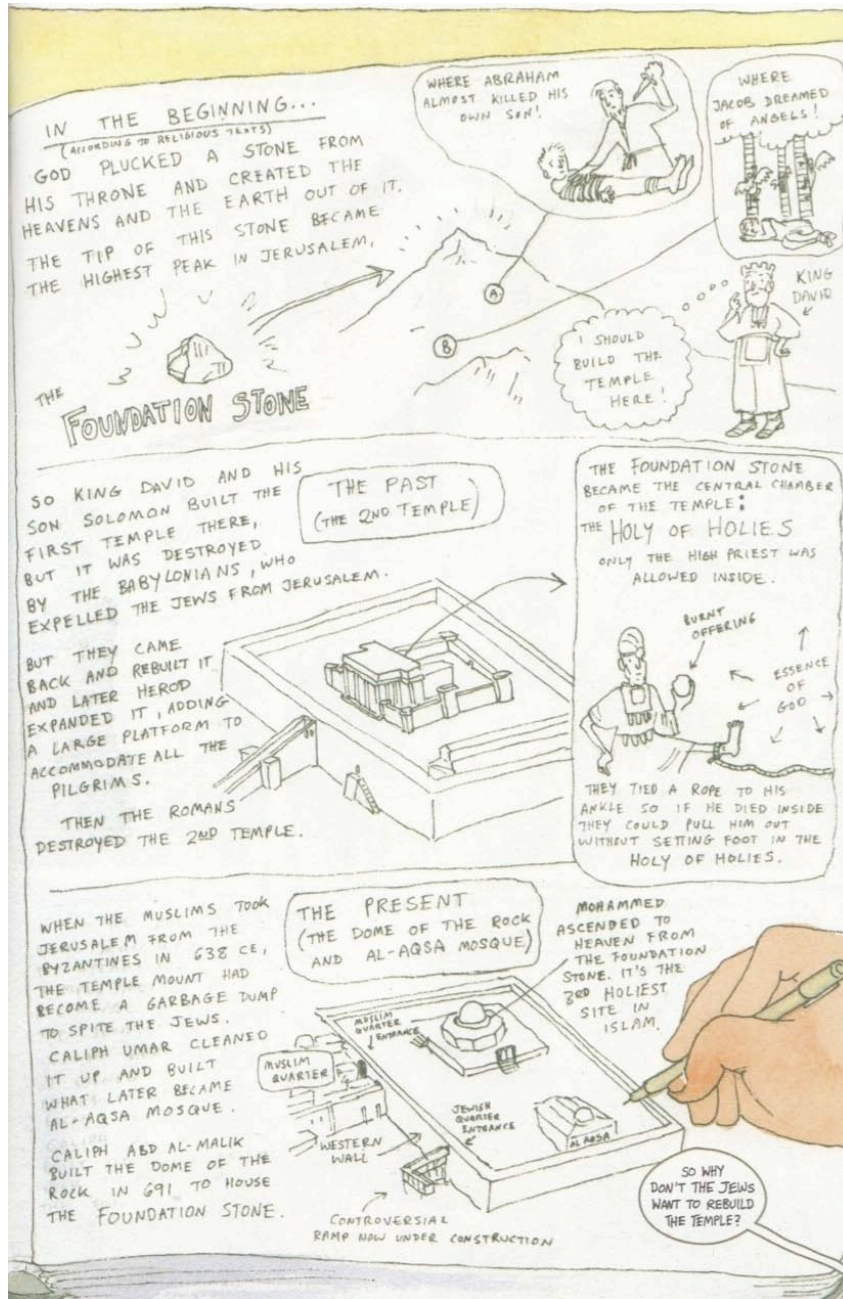 IN THE BEGINNING...
(ACCORDING TO RELIGIOUS TEXTS)
GOD PLUCKED A STONE FROM
HIS THRONE AND CREATED THE
HEAVENS AND THE EARTH OUT OF IT.
THE TIP OF THIS STONE BECAME
THE HIGHEST PEAK IN JERUSALEM.
THE
FOUNDATION STONE
WHERE ABRAHAM
ALMOST KILLED HIS
OWN SON!
A
WHERE
JACOB DREAMED
OF ANGELS!
B
KING
DAVID
I SHOULD
BUILD THE
TEMPLE
HERE!
SO KING DAVID AND HIS
SON SOLOMON BUILT THE
FIRST TEMPLE THERE,
BUT IT WAS DESTROYED
BY THE BABYLONIANS, WHO
EXPELLED THE JEWS FROM JERUSALEM.
BUT THEY CAME
BACK AND REBUILT IT
AND LATER HEROD
EXPANDED IT, ADDING
A LARGE PLATFORM TO
ACCOMMODATE ALL THE
PILGRIMS.
THEN THE ROMANS
DESTROYED THE 2ND TEMPLE.
THE PAST
(THE 2ND TEMPLE)
THE FOUNDATION STONE
BECAME THE CENTRAL CHAMBER
OF THE TEMPLE:
THE HOLY OF HOLIES
ONLY THE HIGH PRIEST WAS
ALLOWED INSIDE.
BURNT
OFFERING
ESSENCE
OF
GOD
THEY TIED A ROPE TO HIS
ANKLE SO IF HE DIED INSIDE
THEY COULD PULL HIM OUT
WITHOUT SETTING FOOT IN THE
HOLY OF HOLIES.
WHEN THE MUSLIMS TOOK
JERUSALEM FROM THE
BYZANTINES IN 638 CE,
THE TEMPLE MOUNT HAD
BECOME A GARBAGE DUMP
TO SPITE THE JEWS.
CALIPH UMAR CLEANED
IT UP AND BUILT
WHAT LATER BECAME
AL-AQSA MOSQUE.
CALIPH ABD AL-MALIK
BUILT THE DOME OF THE
ROCK IN 691 TO HOUSE
THE FOUNDATION STONE.
THE PRESENT
(THE DOME OF THE ROCK
AND AL-AQSA MOSQUE)
MOHAMMED
ASCENDED TO
HEAVEN FROM
THE FOUNDATION
STONE. IT'S THE
3RD HOLIEST
SITE IN
ISLAM.
MUSLIM
QUARTER
ENTRANCE
MUSLIM
QUARTER
JEWISH
QUARTER
ENTRANCE
AL AQSA
WESTERN
WALL
CONTROVERSIAL
RAMP NOW UNDER CONSTRUCTION
SO WHY
DON'T THE JEWS
WANT TO REBUILD
THE TEMPLE?